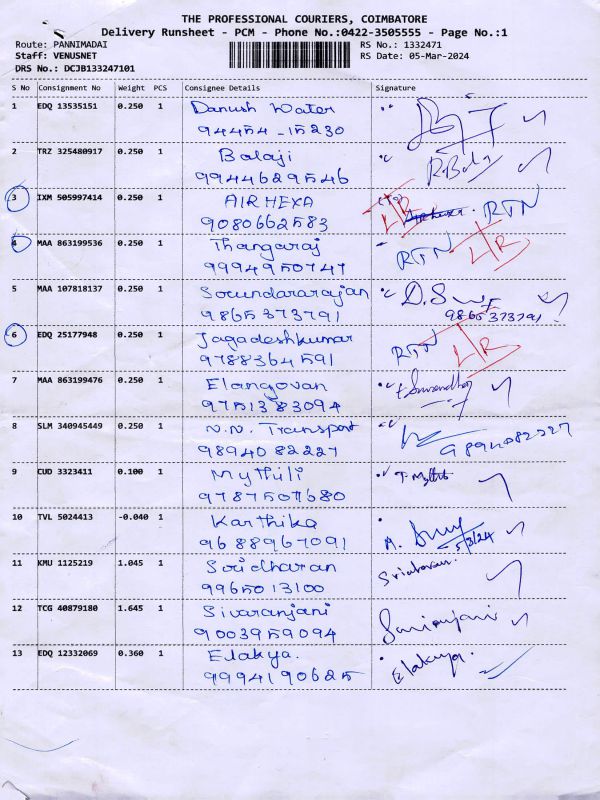 THE PROFESSIONAL COURIERS, COIMBATORE
Delivery Runsheet - PCM - Phone No.:0422-3505555 - Page No.:1
Route: PANNIMADAI RS No.: 1332471
Staff: VENUSNET RS Date: 05-Mar-2024
DRS No.: DCJB133247101
S No Consignment No Weight PCS Consignee Details Signature
1 EDQ 13535151 0.250 1 Danush Water
94454-15230
2 TRZ 325480917 0.250 1 Balaji R.Balaji
9944629546
3 IXM 505997414 0.250 1 AIR HEXA LR RTN
9080662583
4 MAA 863199536 0.250 1 Thangaraj RTN LR
9994950747
5 MAA 107818137 0.250 1 Soundararajan
9865373791 9865373791
6 EDQ 25177948 0.250 1 Jagadeshkumar RTN LR
9788364591
7 MAA 863199476 0.250 1 Elangovan
9751383094
8 SLM 340945449 0.250 1 N.N. Transport
9894082227 9894082227
9 CUD 3323411 0.100 1 Mythili
9787507680
10 TVL 5024413 -0.040 1 Karthika
9688967091 5/3/24
11 KMU 1125219 1.045 1 Sridharan
9965013100
12 TCG 40879180 1.645 1 Sivaranjani
9003959094
13 EDQ 12332069 0.360 1 Elakya. Elakya.
9994190625